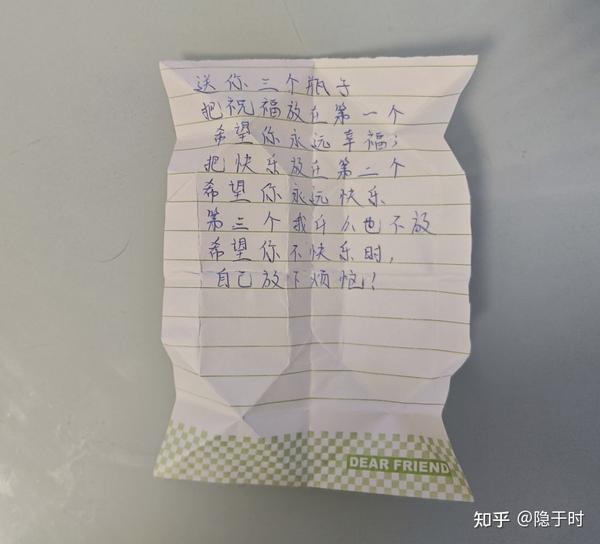 送你三个瓶子
把祝福放在第一个
希望你永远幸福；
把快乐放在第二个
希望你永远快乐
第三个我什么也不放
希望你不快乐时，
自己放下烦恼！
DEAR FRIEND
知乎 @隐于时